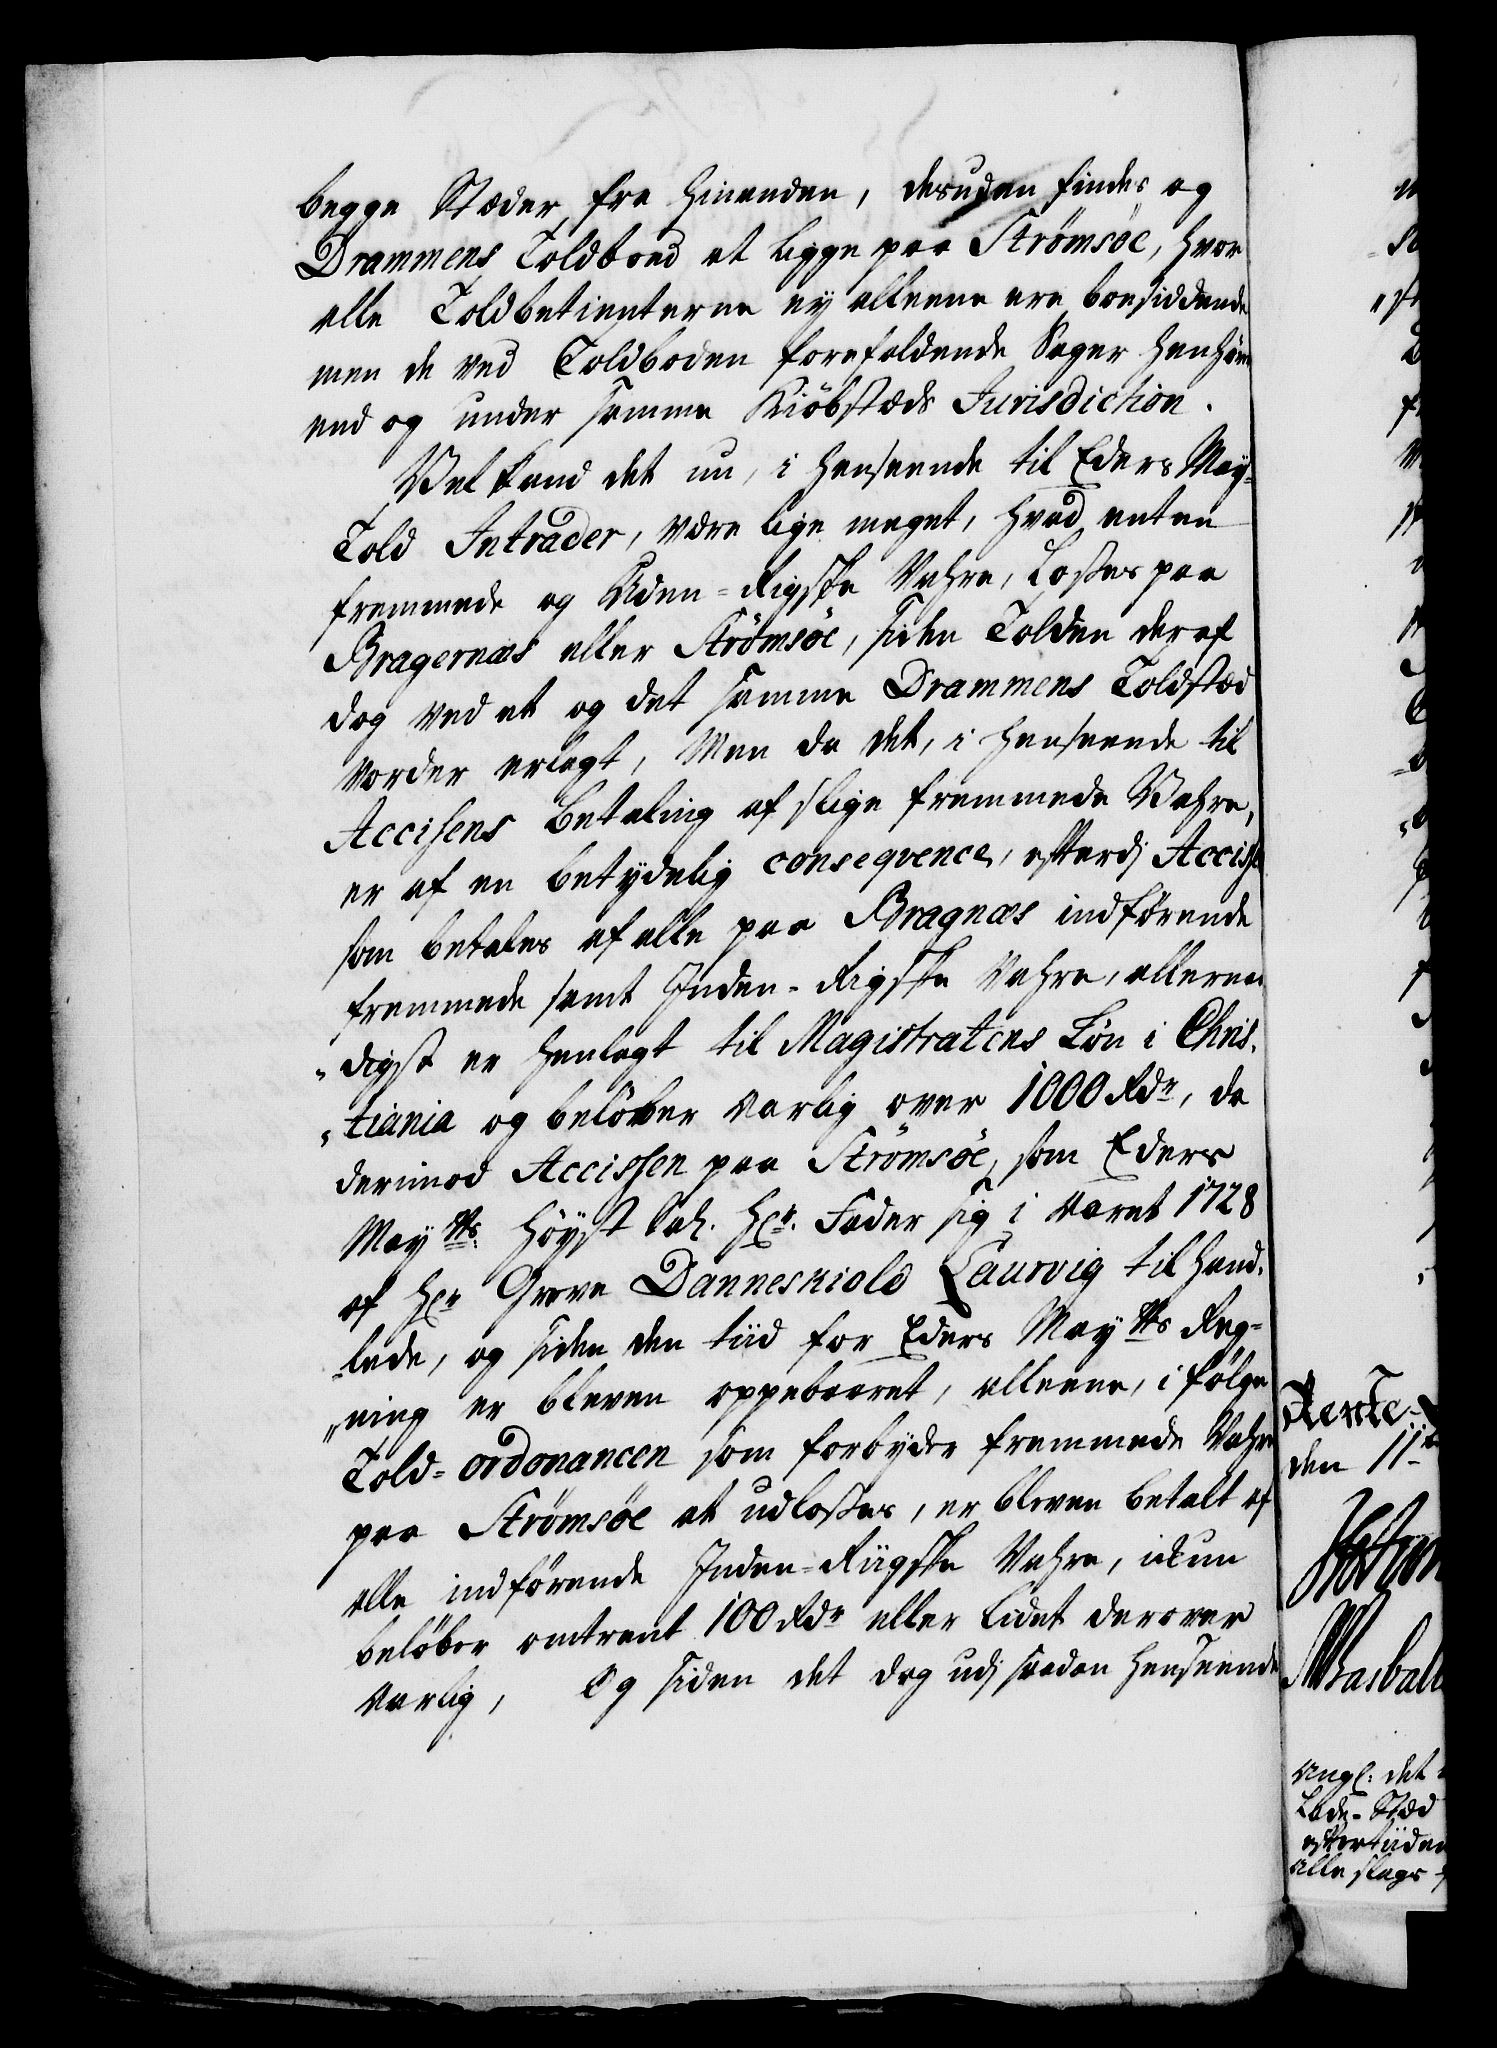 begge Stæder fra hinanden, desuden findes og
Drammens Toldboed at ligge paa Strømsøe, hvor
alle Toldbetienterne ey alleene ere boesiddende
men de ved Toldboden forefaldende Sager henhøre
end og under samme Kiöbstæds Jurisdiction.
Vel kand det nu, i henseende til Eders May-
Told Intrader, være lige meget, hvad enten
fremmede og Uden-Rigske Vahre, Losses paa
Bragernæs eller Strömsöe, siden Tolden deraf
dog ved et og det samme Drammens Toldstæd
vorder erlagt, Men da det, i henseende til
Accisens betaling af slige fremmede Vahre,
er af en betydelig conseqvence, efterdj Accise
som betales af alle paa Bragnæs indförende
fremmede samt Inden-Rigske Vahre, allernaa
"digst er henlagt til Magistratens Løn i Chris.
"tiania og belöber aarlig over 1000 Rdr, da
derimod Accissen paa Strömsöe, som Eders
Mayts Höyst Sal. Hr. Fader sig i Aaret 1728
af Hr Greve Danneskiold Laurvig tilhand.
-lede, og siden den tiid for Eders Mayts Reg-
"ning er bleven oppebaaret, alleene, i fölge
Told-ordonancen som forbyder fremmede Vahre
paa Strømsøe at udlosses, er bleven betalt af
alle indförende Inden-Riigske Vahre, ickun
belöber omtrent 100 Rdr eller lidet derover
aarlig, Og siden det dog udj saadan henseende
Rente-
den 11te
Angl: det
Lade-Stæd
eftertiiden
alle slags